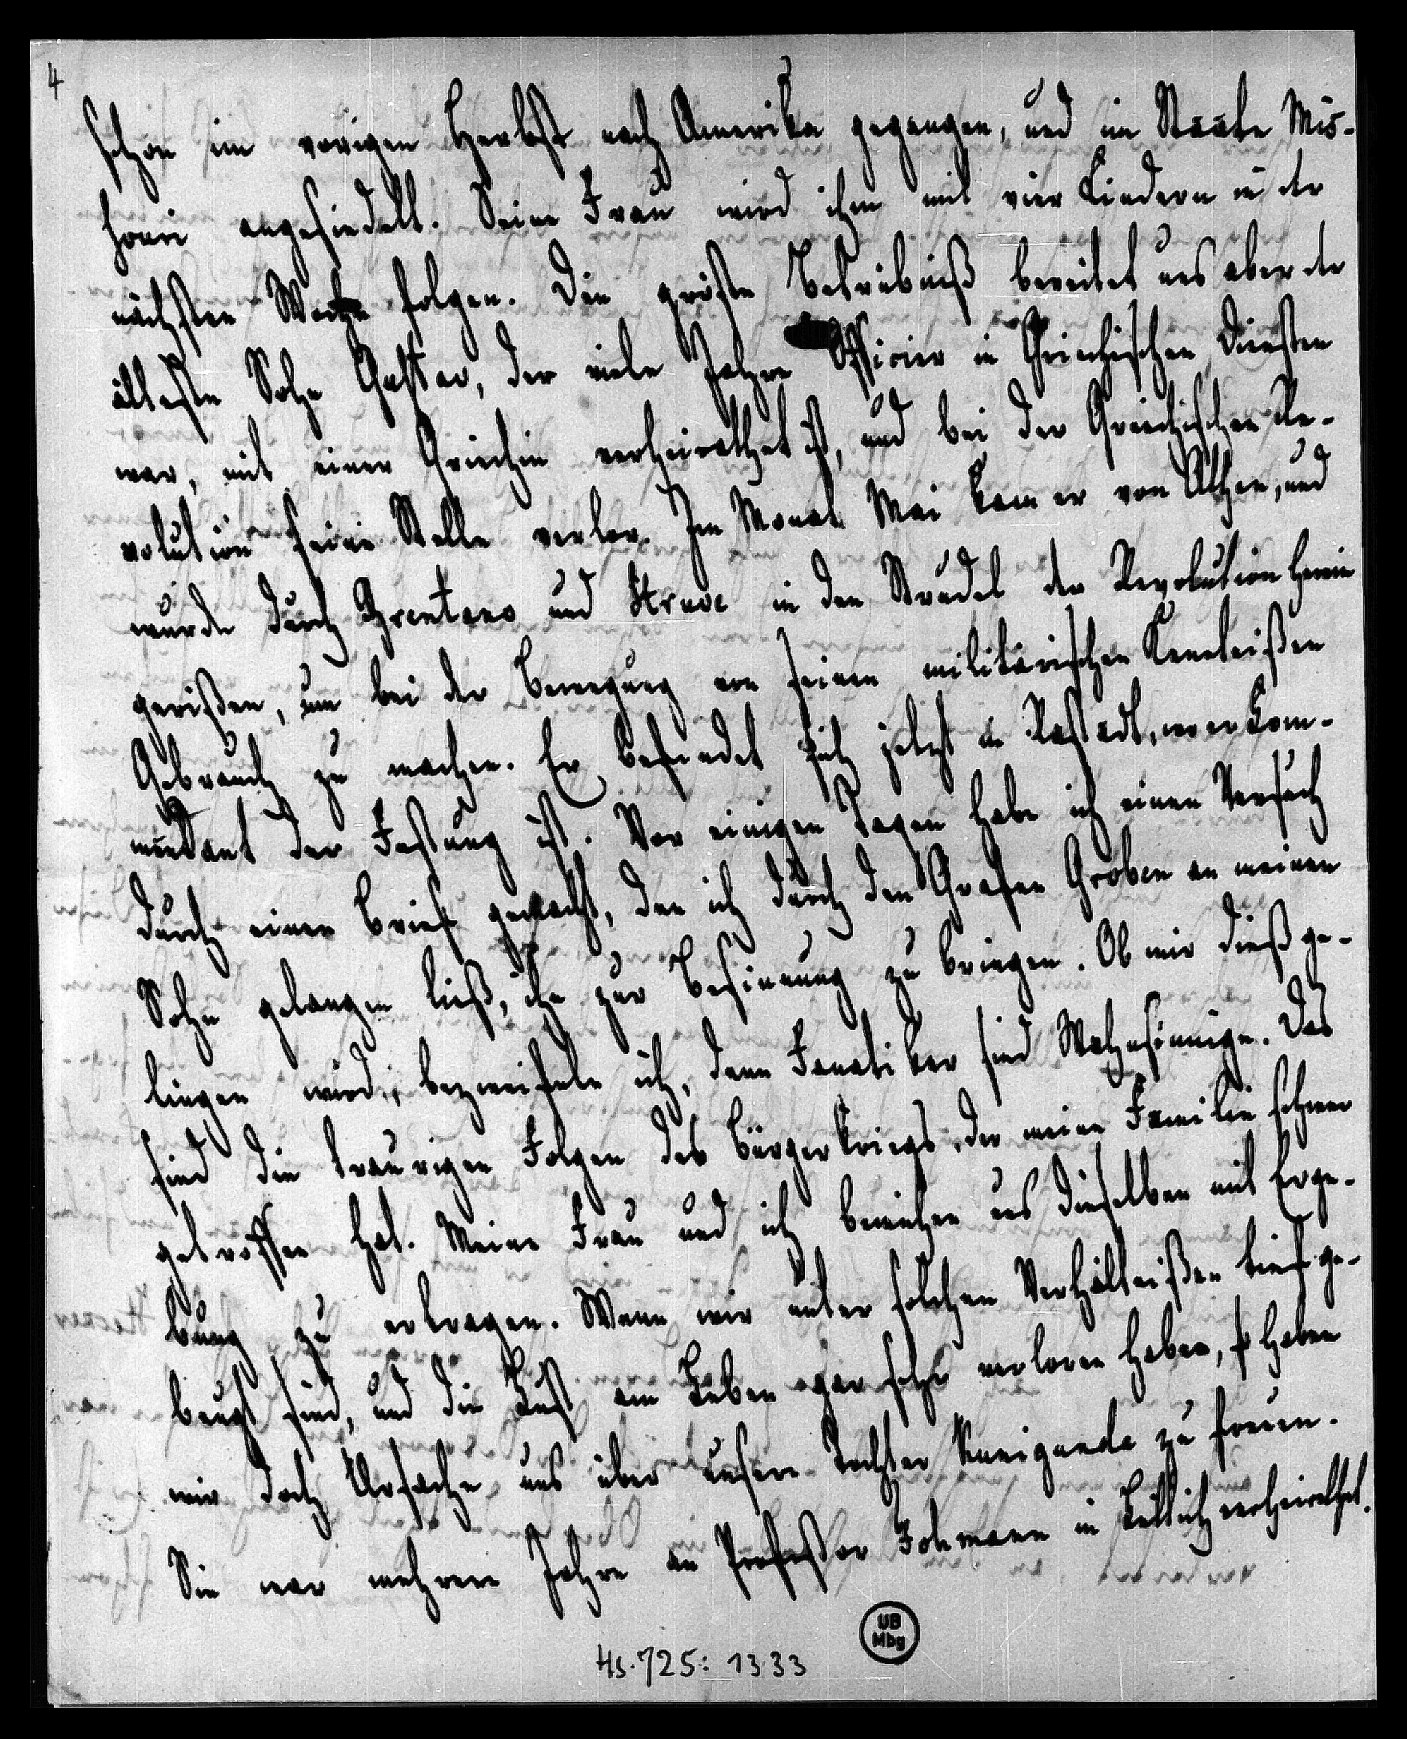 4
schon im vorigen Herbst nach Amerika gegangen, und im Staate Mis-
souri angesiedelt. Seine Frau wird ihm mit vier Kindern in der
nächsten Woche folgen. Die gröste Betrübniß bereitet uns aber der
älteste Sohn Gustav, der viele Jahre Officier in Griechischen Diensten
war, mit einer Griechin verheirathet ist, und bei der Griechischen Re-
volution seine Stelle verlor. Im Monat Mai kam er von Athen, und
wurde durch Brentano und Struve in den Strudel der Revolution herein
gerißen, um bei der Bewegung von seinen militärischen Kenntnißen
Gebrauch zu machen. Er befindet sich jetzt in Rastadt, wo er Kom-
mandant der Festung ist. Vor einigen Tagen habe ich einen Versuch
durch einen Brief gemacht, den ich durch den Grafen Gröben an meinen
Sohn gelangen ließ, ihn zur Besinnung zu bringen. Ob mir dieß ge-
lingen wird, bezweifele ich, denn Fanatiker sind Wahnsinnige. Das
sind die traurigen Folgen des Bürgerkriegs, der meine Familie schwer
getroffen hat. Meine Frau und ich bemühen uns dieselben mit Erge-
bung zu ertragen. Wenn wir unter solchen Verhältnißen tief ge-
beugt sind, und die Lust am Leben verloren haben, so haben
wir doch Ursache, uns über unsere Tochter Kunigunde zu freuen.
Sie war mehrere Jahre an Professor Fohmann in Lüttich verheirathet.
UB
Mbg
Hs. 725: 1333